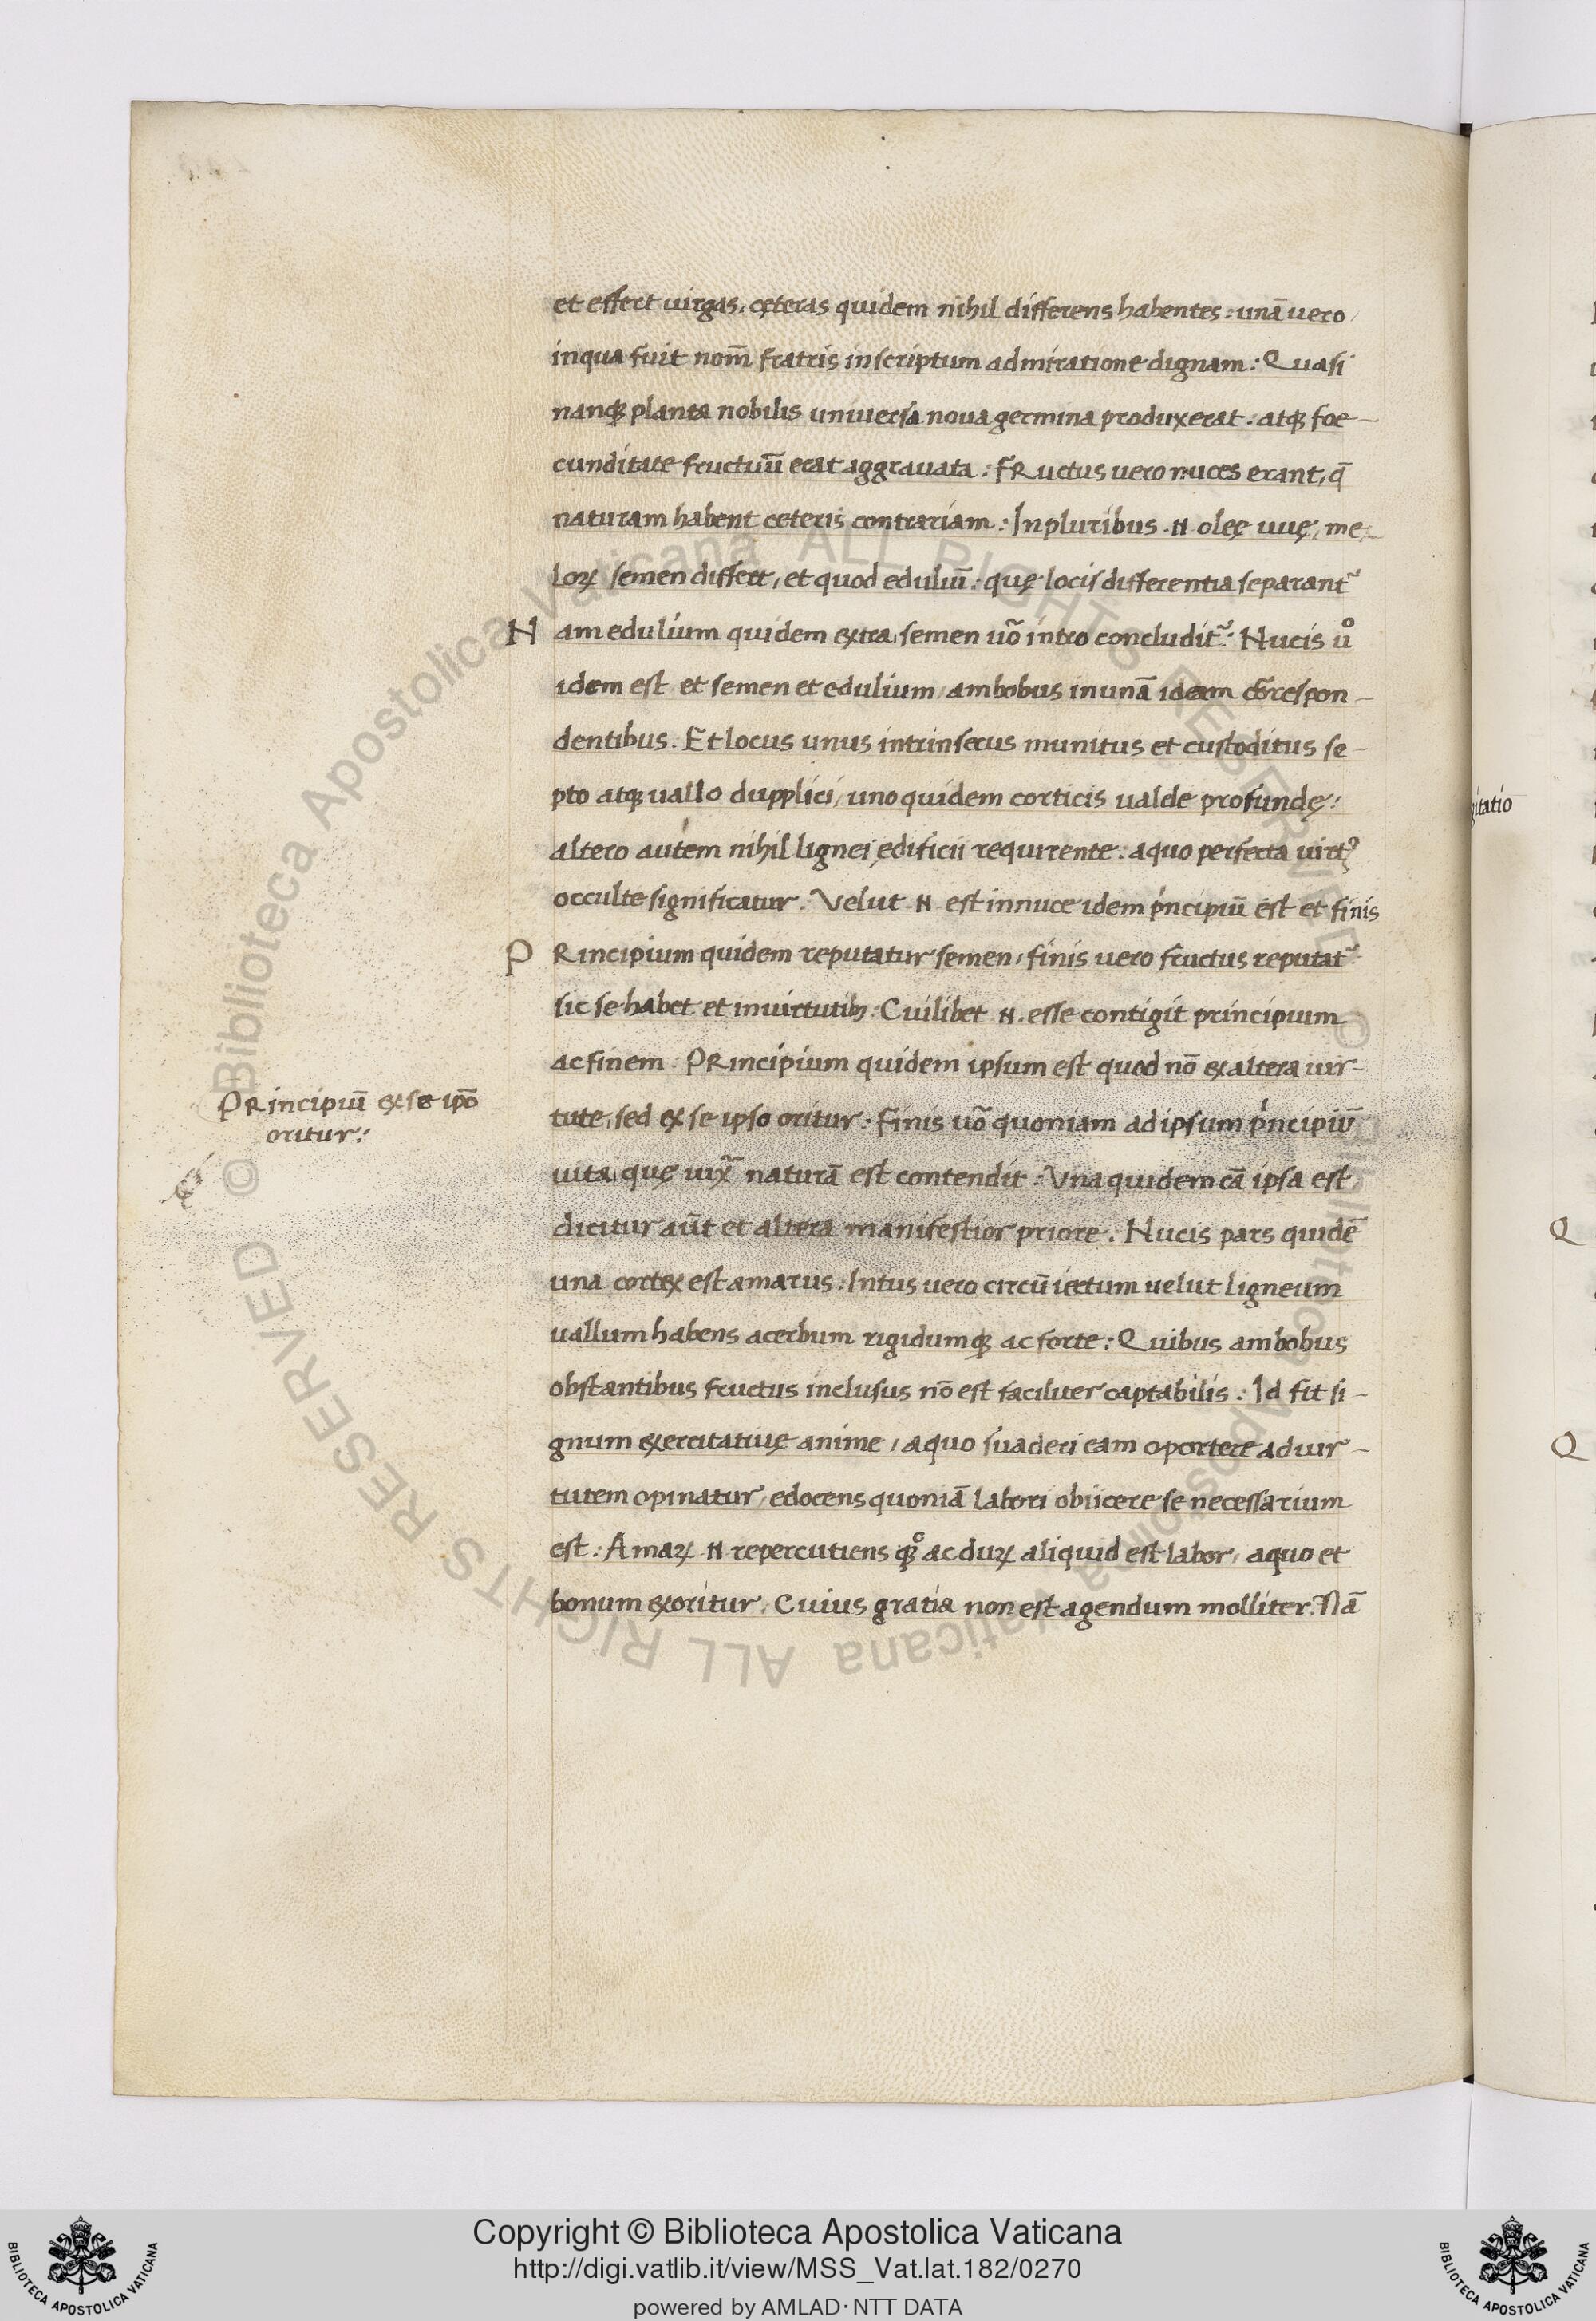 et effert uirgas, cęteras quidem nihil differens habentes: unā uero
inqua fuit nom̄ fratris inscriptum admiratione dignam: Quasi
nanqꝫ planta nobilis uniuersa noua germina produxerat: atqꝫ foe-
cunditate fructuū erat aggrauata: FRuctus uero nuces erant, q̄
naturam habent ceteris contrariam: In pluribus .N. olee uuę, me-
loꝝ semen differt, et quod eduliū: quę locis differentia separant᷑
Nam edulium quidem extra, semen uō intro concludit᷑: Nucis uͦ
idem est et semen et edulium, ambobus in unā ideam correspon-
dentibus. Et locus unus intrinsecus munitus et custoditus se-
pto atqꝫ uallo dupplici, uno quidem corticis ualde profundę:
altero autem nihil lignei ędificii requirente: a quo perfecta uirtꝰ
occulte significatur. Velut .N. est innuce idem pͥncipiū est et finis
PRincipium quidem reputatur semen, finis uero fructus reputat᷑
sic se habet et inuirtutibꝫ: Cuilibet .N. esse contigit principium
ac finem. PRincipium quidem ipsum est quod nō ex altera uir-
tute, sed ex se ipso oritur: Finis uō quoniam ad ipsum pͥncipiū
PRincipiū ex se ipō
oritur:
uita quę naturā est contendit: Vna quidem cā ipsa est
dicitur aūt et altera manifestior priore. Nucis pars quidē
una cortex est amarus: Intus uero circūiectum uelut ligneum
uallum habens acerbum rigidumqꝫ ac forte: Quibus ambobus
obstantibus fructus inclusus nō est faciliter captabilis: Id fit si-
gnum exercitatiuę anime, a quo suaderi eam oportere ad uir-
tutem opinatur, edocens quoniā labori obiicere se necessarium
est: Amaꝝ .N. repercutiens qꝫͦ ac duꝝ aliquid est labor, a quo et
bonum exoritur. Cuius gratia non est agendum molliter. Nā
gitatio
Q
Q
© Biblioteca Apostolica Vaticana ALL RIGHTS RESERVED
© Biblioteca Apostolica Vaticana ALL RIGHTS RESERVED
Copyright © Biblioteca Apostolica Vaticana
http://digi.vatlib.it/view/MSS_Vat.lat.182/0270
powered by AMLAD·NTT DATA
BIBLIOTECA APOSTOLICA VATICANA
BIBLIOTECA APOSTOLICA VATICANA